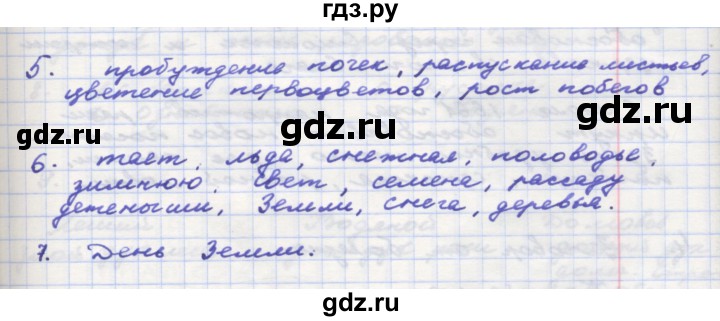 гдз.ру
5. пробуждение почек, распускание листьев,
цветение первоцветов, рост побегов
gdz.ru gdz.ru gdz.ru
6. тает, льда, снежная, половодье,
зимнюю, свет, семена, рассаду
детеныши, Земли, снега, деревья.
gdz.ru gdz.ru
7. День Земли.
gdz.ru